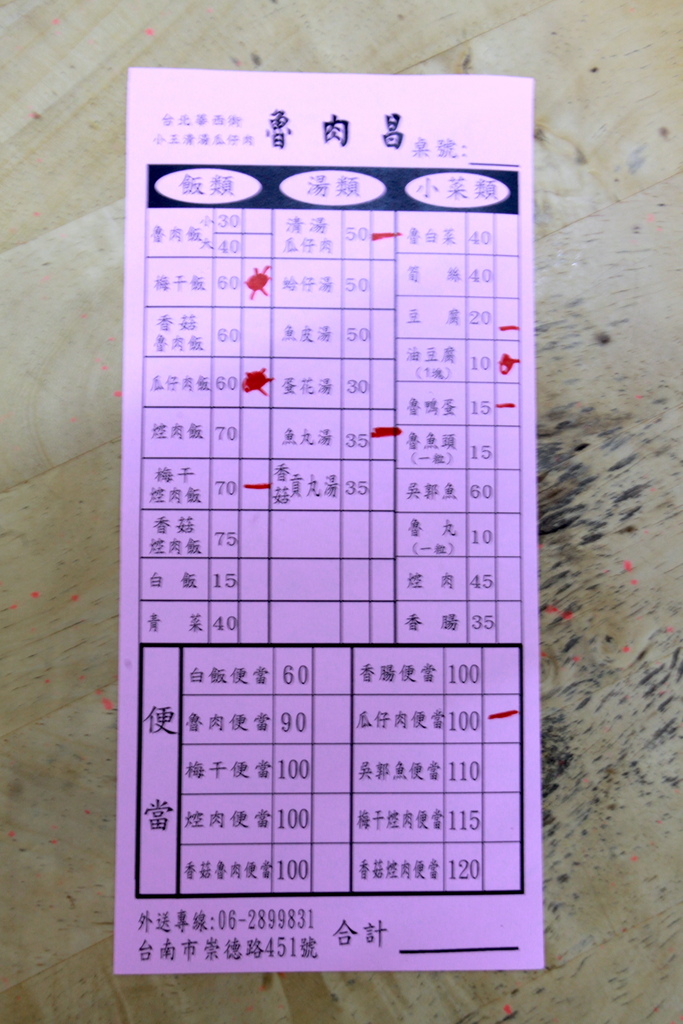 台北華西街
小王清湯瓜仔肉
魯肉昌
桌號:
飯類 湯類 小菜類
魯肉飯 小 30
大 40
梅干飯 60
香菇
魯肉飯 60
瓜仔肉飯 60
焢肉飯 70
梅干
焢肉飯 70
香菇
焢肉飯 75
白飯 15
青菜 40
清湯
瓜仔肉 50
蛤仔湯 50
魚皮湯 50
蛋花湯 30
魚丸湯 35
香菇貢丸湯 35
魯白菜 40
筍絲 40
豆腐 20
油豆腐 10
(1塊)
魯鴨蛋 15
魯魚頭 15
(一粒)
吳郭魚 60
魯丸 10
(一粒)
焢肉 45
香腸 35
便當
白飯便當 60 香腸便當 100
魯肉便當 90 瓜仔肉便當 100
梅干便當 100 吳郭魚便當 110
焢肉便當 100 梅干焢肉便當 115
香菇魯肉便當 100 香菇焢肉便當 120
外送專線:06-2899831
台南市崇德路451號
合計